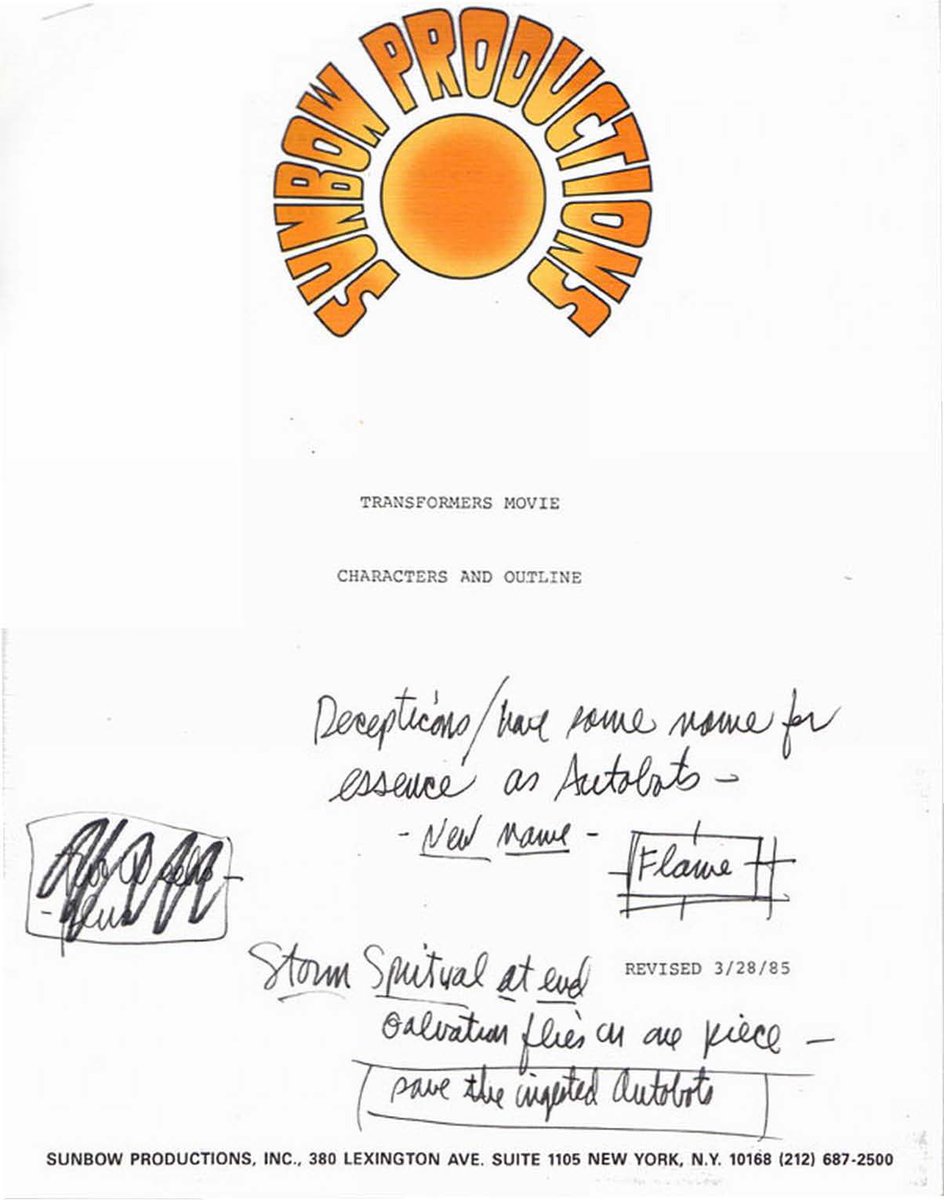 SUNBOW PRODUCTIONS
TRANSFORMERS MOVIE
CHARACTERS AND OUTLINE
Decepticons/have some name for
essence as Autobots -
- New name -
Flame
Storm Spritual at end
REVISED 3/28/85
flies in one piece -
save the ingested Autobots
SUNBOW PRODUCTIONS, INC., 380 LEXINGTON AVE. SUITE 1105 NEW YORK, N.Y. 10168 (212) 687-2500